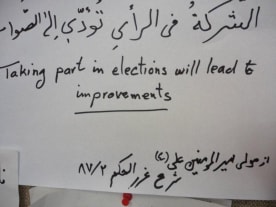 الشركةُ فى الرأيِ تُؤدّي إلىَ الصّواب
Taking part in elections will lead to
improvements
از مولی امیرالمومنین علی (ع)
شرح غرر الحکم ۸۷/۲